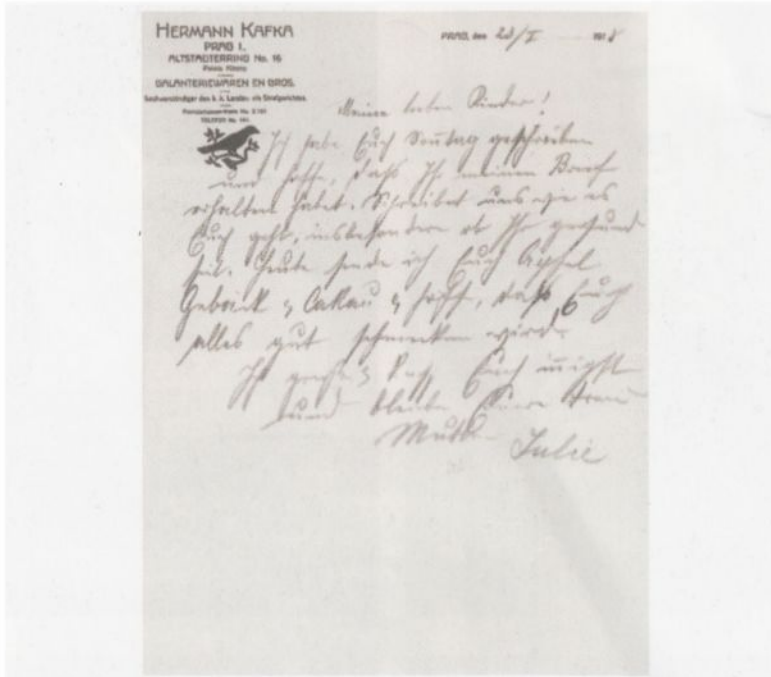 HERMANN KAFKA
PRAG I.
ALTSTÄDTERRING No. 16
Palais Kinsky
GALANTERIEWAREN EN GROS.
Sachverständiger des k. k. Landes- als Strafgerichtes.
PRAG, den 23/I 1918
Meine lieben Kinder!
Ich habe Euch Sonntag geschrieben
und hoffe, daß Ihr meinen Brief
erhalten habet. Schreibet uns wie es
Euch geht, insbesondere ob Ihr gesund
seit. Heute sende ich Euch Äpfel
Gebäck & Cakau & hoffe, daß Euch
alles gut schmecken wird.
Ich grüße & küsse Euch innigst
und bleibe Eure treue
Mutter Julie